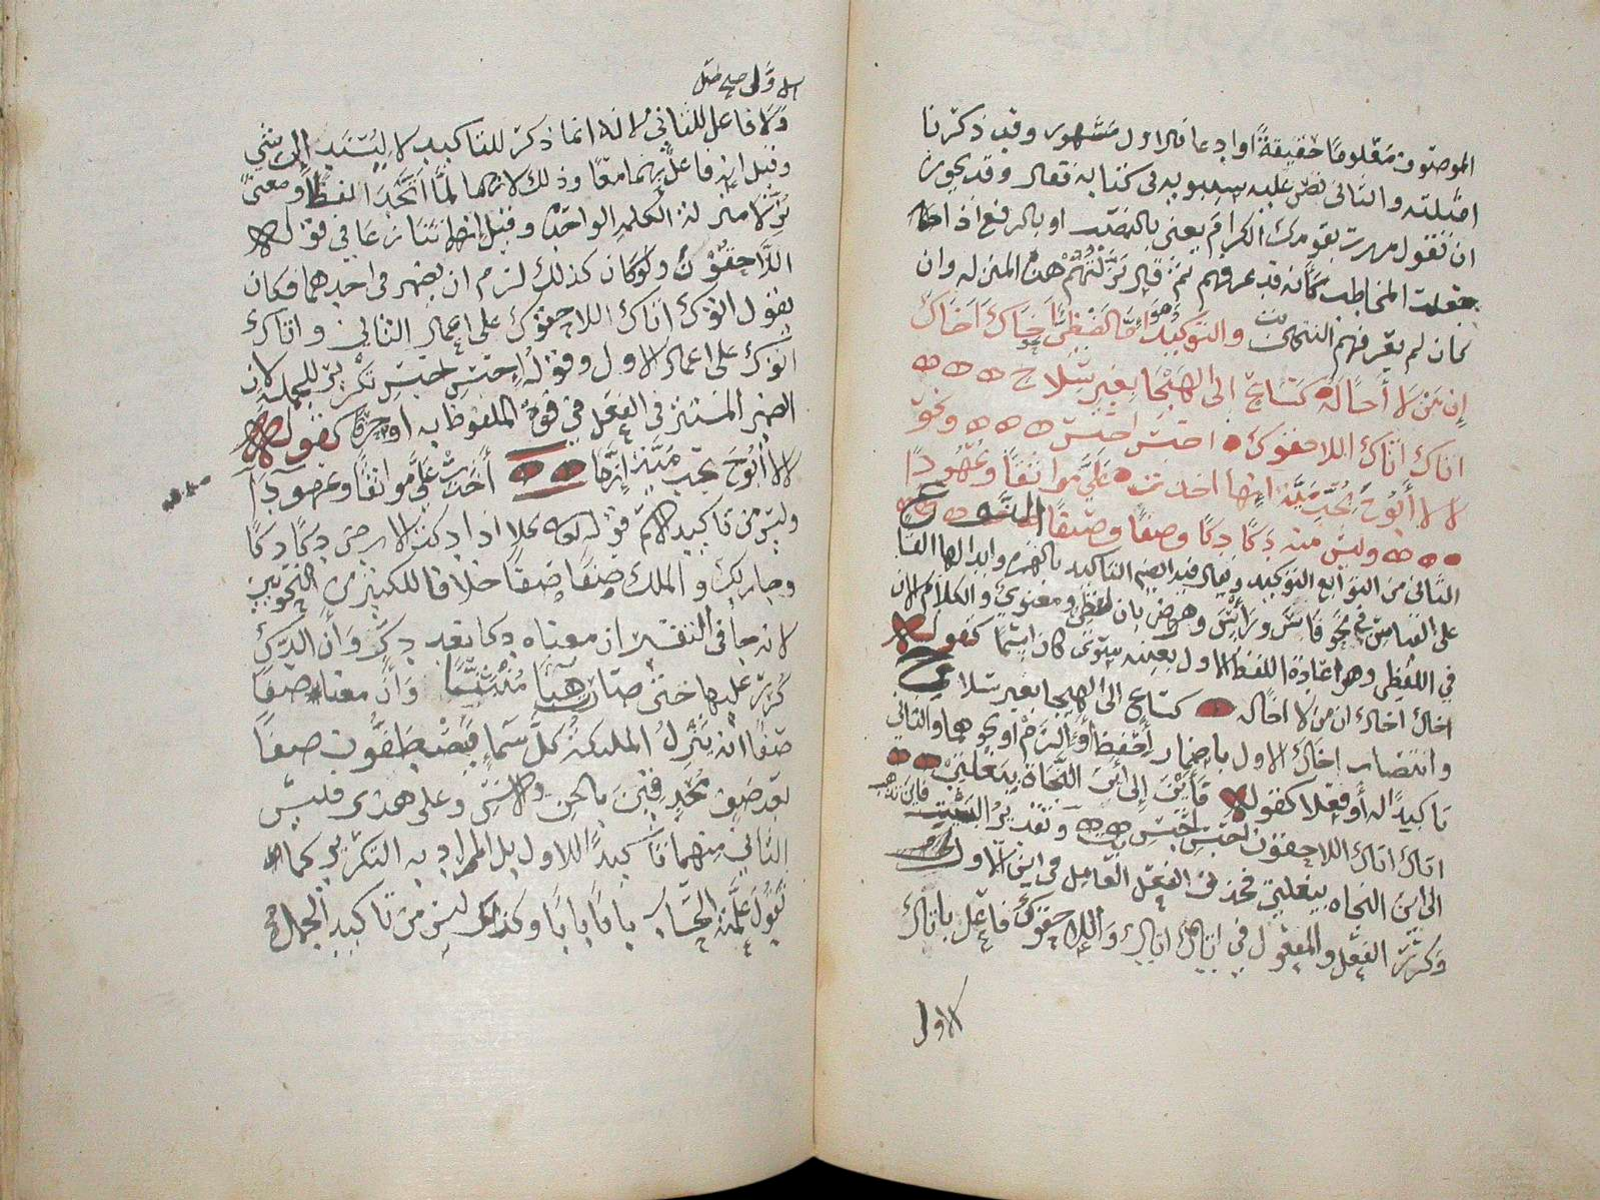 الموصوف معلوما حقيقةً اوادعا فالاول مشهور وقد ذكرنا
امثلته والثانى نص عليه سيبويه فى كتابه فقال وقد يجوز
ان تقول مررت بقومك الكرام يعنى بالنصب او بالرفع اذا
جعلت المخاطب كأنه قد عرفهم ثم قال نزلتهم هذه المنزله وان
كان لم يعرفهم انتهى والتوكيد وهو اما لفظى اخاك اخاك
إن من لا أخاله كساعٍ الى الهيجا بغير سلاح
اتاك اتاك اللاحقوك احبس احبس ونحو
لا لا أبوح بحب بثنة انها اخذت علىّ مواثقا وعهودا
وليس منه دكا دكا وصفا وصفا الشرح
الثانى من التوابع التوكيد ويقال فيه ايضا التاكيد بالهمزه وابدالها الفا
على القياس فى نحو فاس وراس وهو ضربان لفظى ومعنوى والكلام الان
فى اللفظى وهو اعادة اللفظ الاول بعينه سوى كان اسما كقوله
اخاك اخاك ان من لا اخاله كساع الى الهيجا بغير سلاح
وانتصاب اخاك الاول باضمار احفظ أو الزم او نحوهما والثانى
تاكيدا له أو فعلا كقوله فأين إلى أين النجاة ببغلتى
اتاك اتاك اللاحقون احبس احبس وتقدير البيت فاين تذهب
الى اين النجاه ببغلتى فحذف الفعل العامل فى اين الاول
وكرّر الفعل والمفعول فى اتاك اتاك واللاحقوك فاعل باتاك
الاول
الاول
ولا فاعل للثانى لانه انما ذكر للتاكيد لا ليسند الى شى
وقيل انه فاعل بهما معًا وذلك لانهما لمّا اتحدا لفظا ومعنى
نزلا منزلة الكلمه الواحده وقيل انهما تنازعا فى قوله
اللاحقوك ولو كان كذلك لزم ان يضمر فى احدهما فكان
يقول اتوك اتاك اللاحقوك على اعمال الثانى واتاك
اتوك على اعمال الاول وقوله احبس احبس تكرير للجمله لان
الضمير المستتر فى الفعل فى قوة الملفوظ به او حرفا كقوله
لا لا أبوح بحب بثنة إنها أخذت علىّ مواثقا وعهودا
وليس من تاكيد الاسم قوله تعالى كلا اذا دكت الارض دكا دكا
وجا ربك والملك صفا صفا خلافا للكثير من النحويين
لانه جا فى التفسير ان معناه دكا بعد دك وأن الدك
كرر عليها حتى صارت هبا منبثا وأن معنا صفا
صفا انه تنزل الملايكة كل سما فيصطفون صفا
بعد صف محدقين بالجن والانس وعلى هذا فليس
الثانى منهما تاكيدا للاول بل المراد به التكرير كما
تقول علمته الحساب بابا بابا وكذلك ليس من تاكيد الجمل